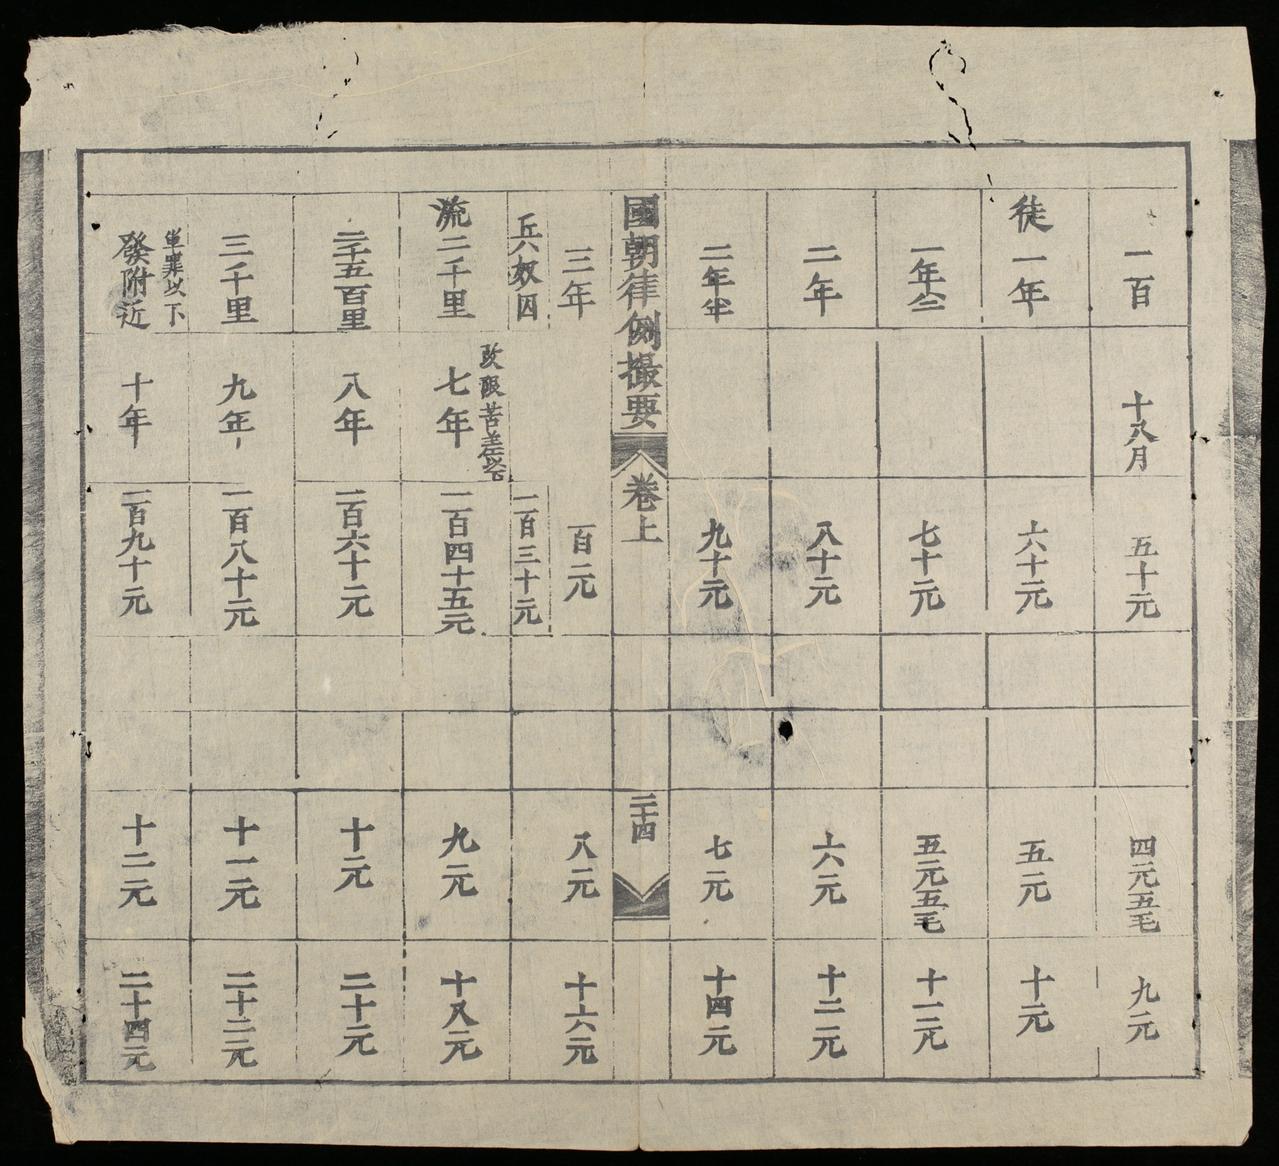 一百
十八月
五十元
四元五毛
九元
徒一年
六十元
五元
十元
一年
七十元
五元五毛
十一元
二年
八十元
六元
十二元
二年半
九十元
七元
十四元
國朝律例撮要
卷上
二十四
三年
百元
八元
十六元
兵六奴囚
一百三十元
改限苦差
流二千里
七年
一百四十五元
九元
十八元
二千五百里
八年
一百六十元
十元
二十元
三千里
九年
一百八十元
十一元
二十二元
軍罪以下
發附近
十年
一百九十元
十二元
二十四元